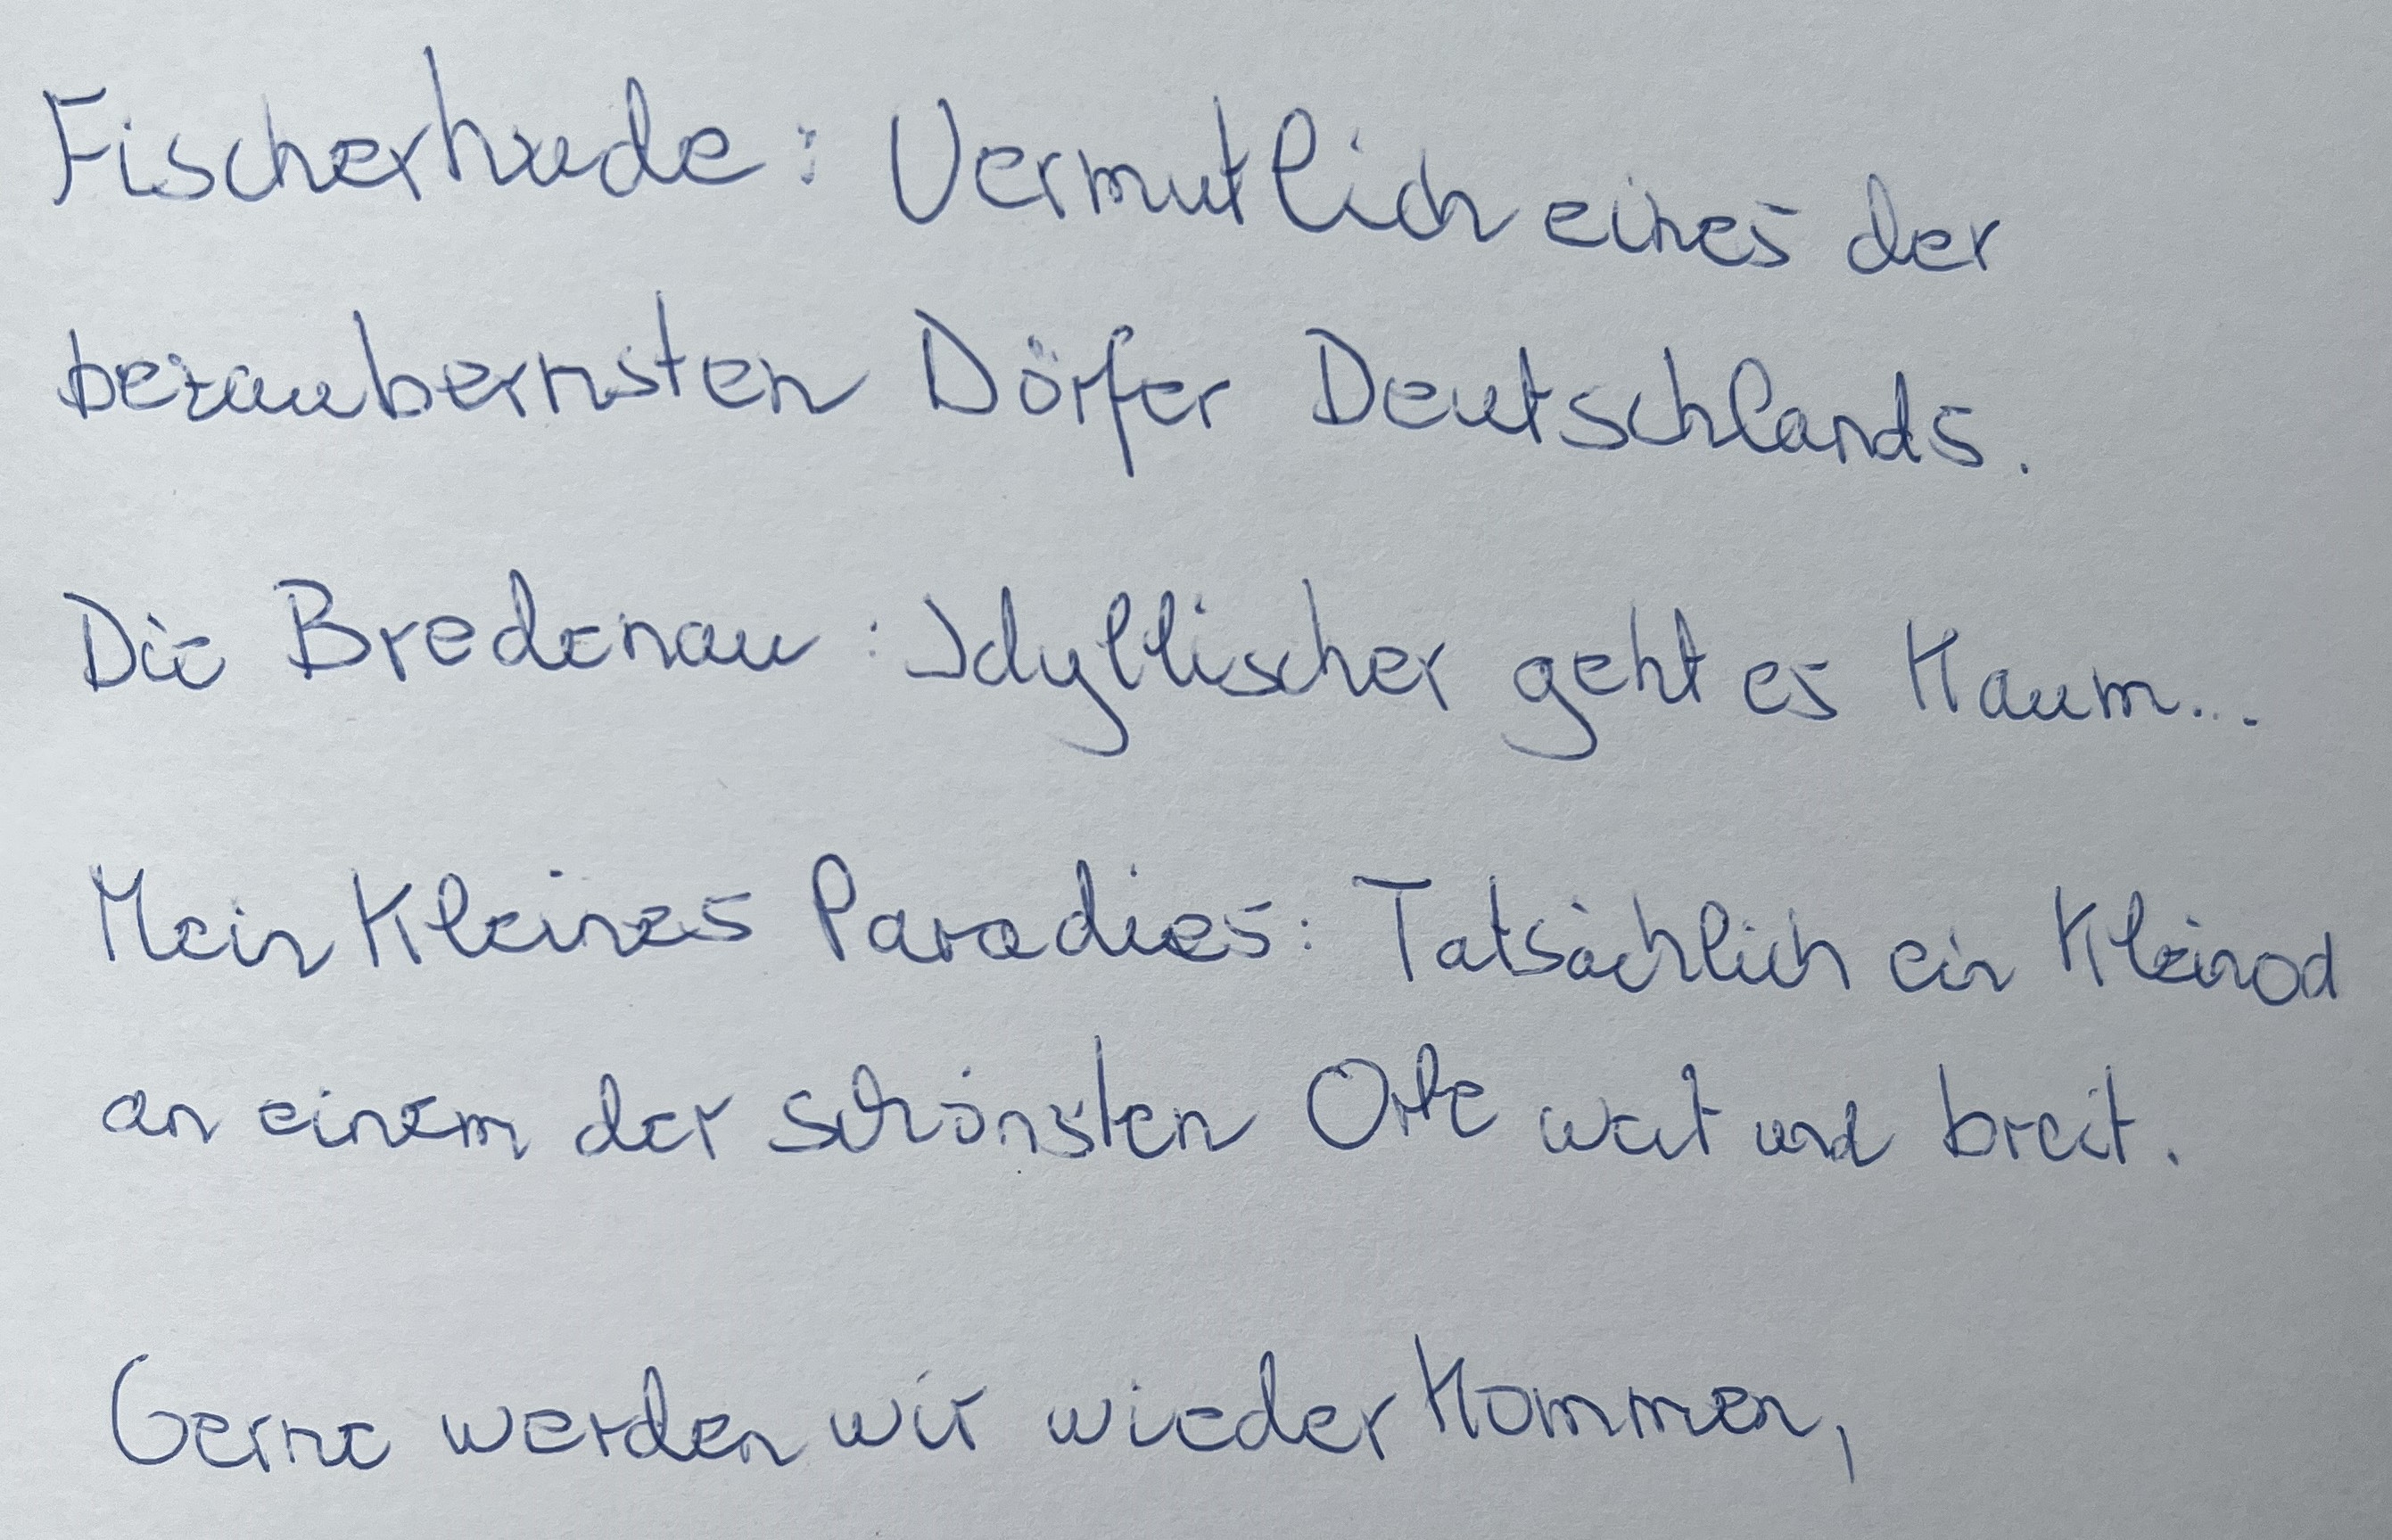 Fischerhude: Vermutlich eines der
bezaubernsten Dörfer Deutschlands.
Die Bredenau: Idyllischer geht es kaum...
Mein kleines Paradies: Tatsächlich ein Kleinod
an einem der schönsten Orte weit und breit.
Gerne werden wir wieder kommen,